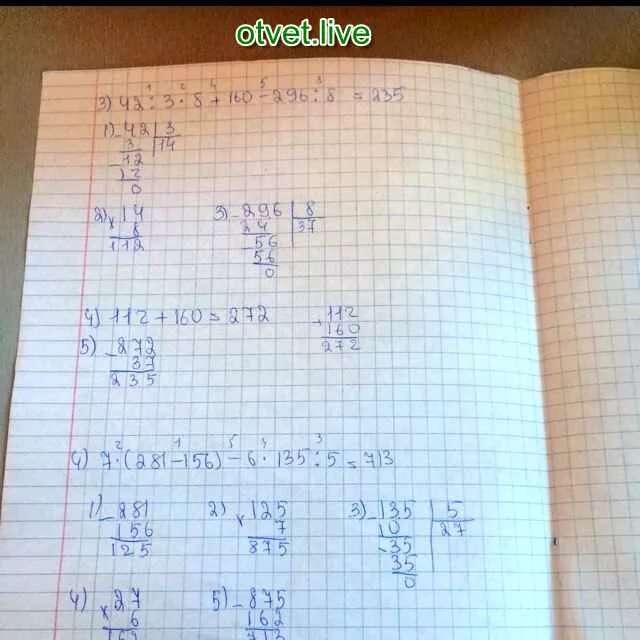 otvet.live
3) 42 : 3 · 8 + 160 - 296 : 8 = 235
1) 42 | 3
3 | 14
12
12
0
2) 14
× 8
112
3) - 296 | 8
24 | 37
- 56
56
0
4) 112 + 160 = 272
112
+ 160
272
5) - 272
37
235
4) 7 · (281 - 156) - 6 · 135 : 5 = 713
1) - 281
156
125
2) × 125
7
875
3) - 135 | 5
10 | 27
- 35
35
0
4) × 27
6
162
5) - 875
162
713